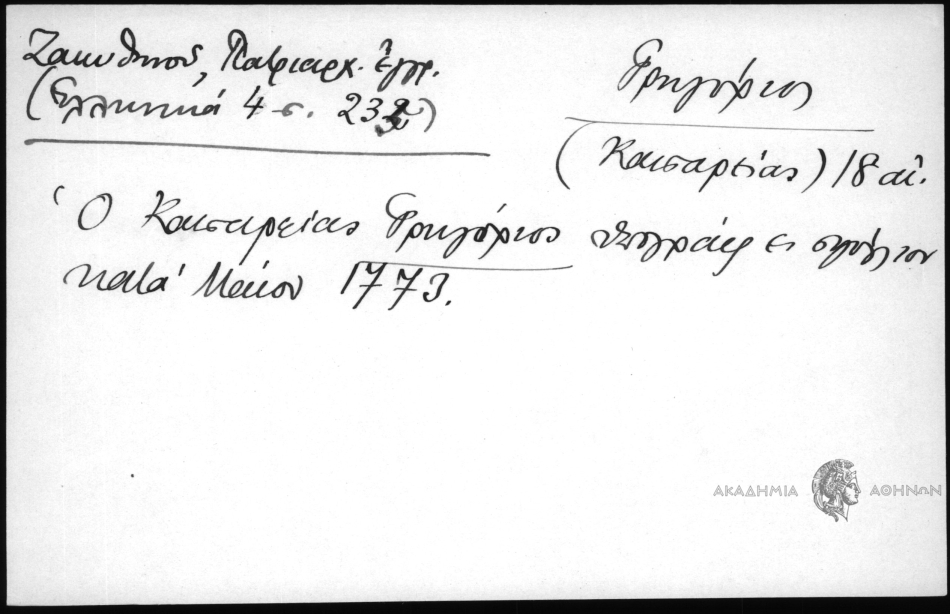 Ζακυθηνοῦ, Πατριαρχ. ἔγγρ.
(Ἑλληνικά 4 σ. 232)
Γρηγόριος
(Καισαρείας) 18 αἰ.
Ὁ Καισαρείας Γρηγόριος ὑπογράφει
κατά Μάιον 1773.
ΑΚΑΔΗΜΙΑ ΑΘΗΝΩΝ